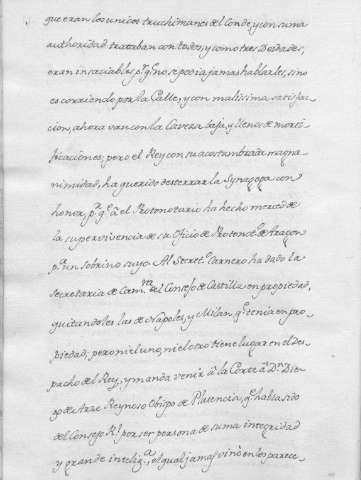 que eran los unicos truchimanes del Conde, y con suma
authoridad trataban con todos, y como tres Deidades,
eran insaciables, pr. qe. no se podia jamas hablarles, sino
es corriendo por la Calle, y con malissima satisfac-
cion, ahora van con la Caveza baja, y llenos de morti-
ficaciones; pero el Rey con su acostumbrada magna-
nimidad, ha querido desterrar la Synagoga con
honor, pr. qe. â el Protonotario ha hecho merced de
la supervivencia de su Oficio de Protonotº. de Aragon
pª. un sobrino suyo. Al Secretº. Carnero ha dado la
Secretaria de Camra. del Consejo de Castilla en propiedad,
quitandoles las de Napoles, y Milan, qe. tenia en pro-
piedad; pero ni el uno, ni el otro tiene lugar en el des-
pacho del Rey, y manda venir â la Corte â Dn. Die-
go de Arze Reynoso Obispo de Plasencia, qe. habia sido
del Consejo Rl. por ser persona de suma integridad
y grande inteligª. el qual jamas vino en los parece-